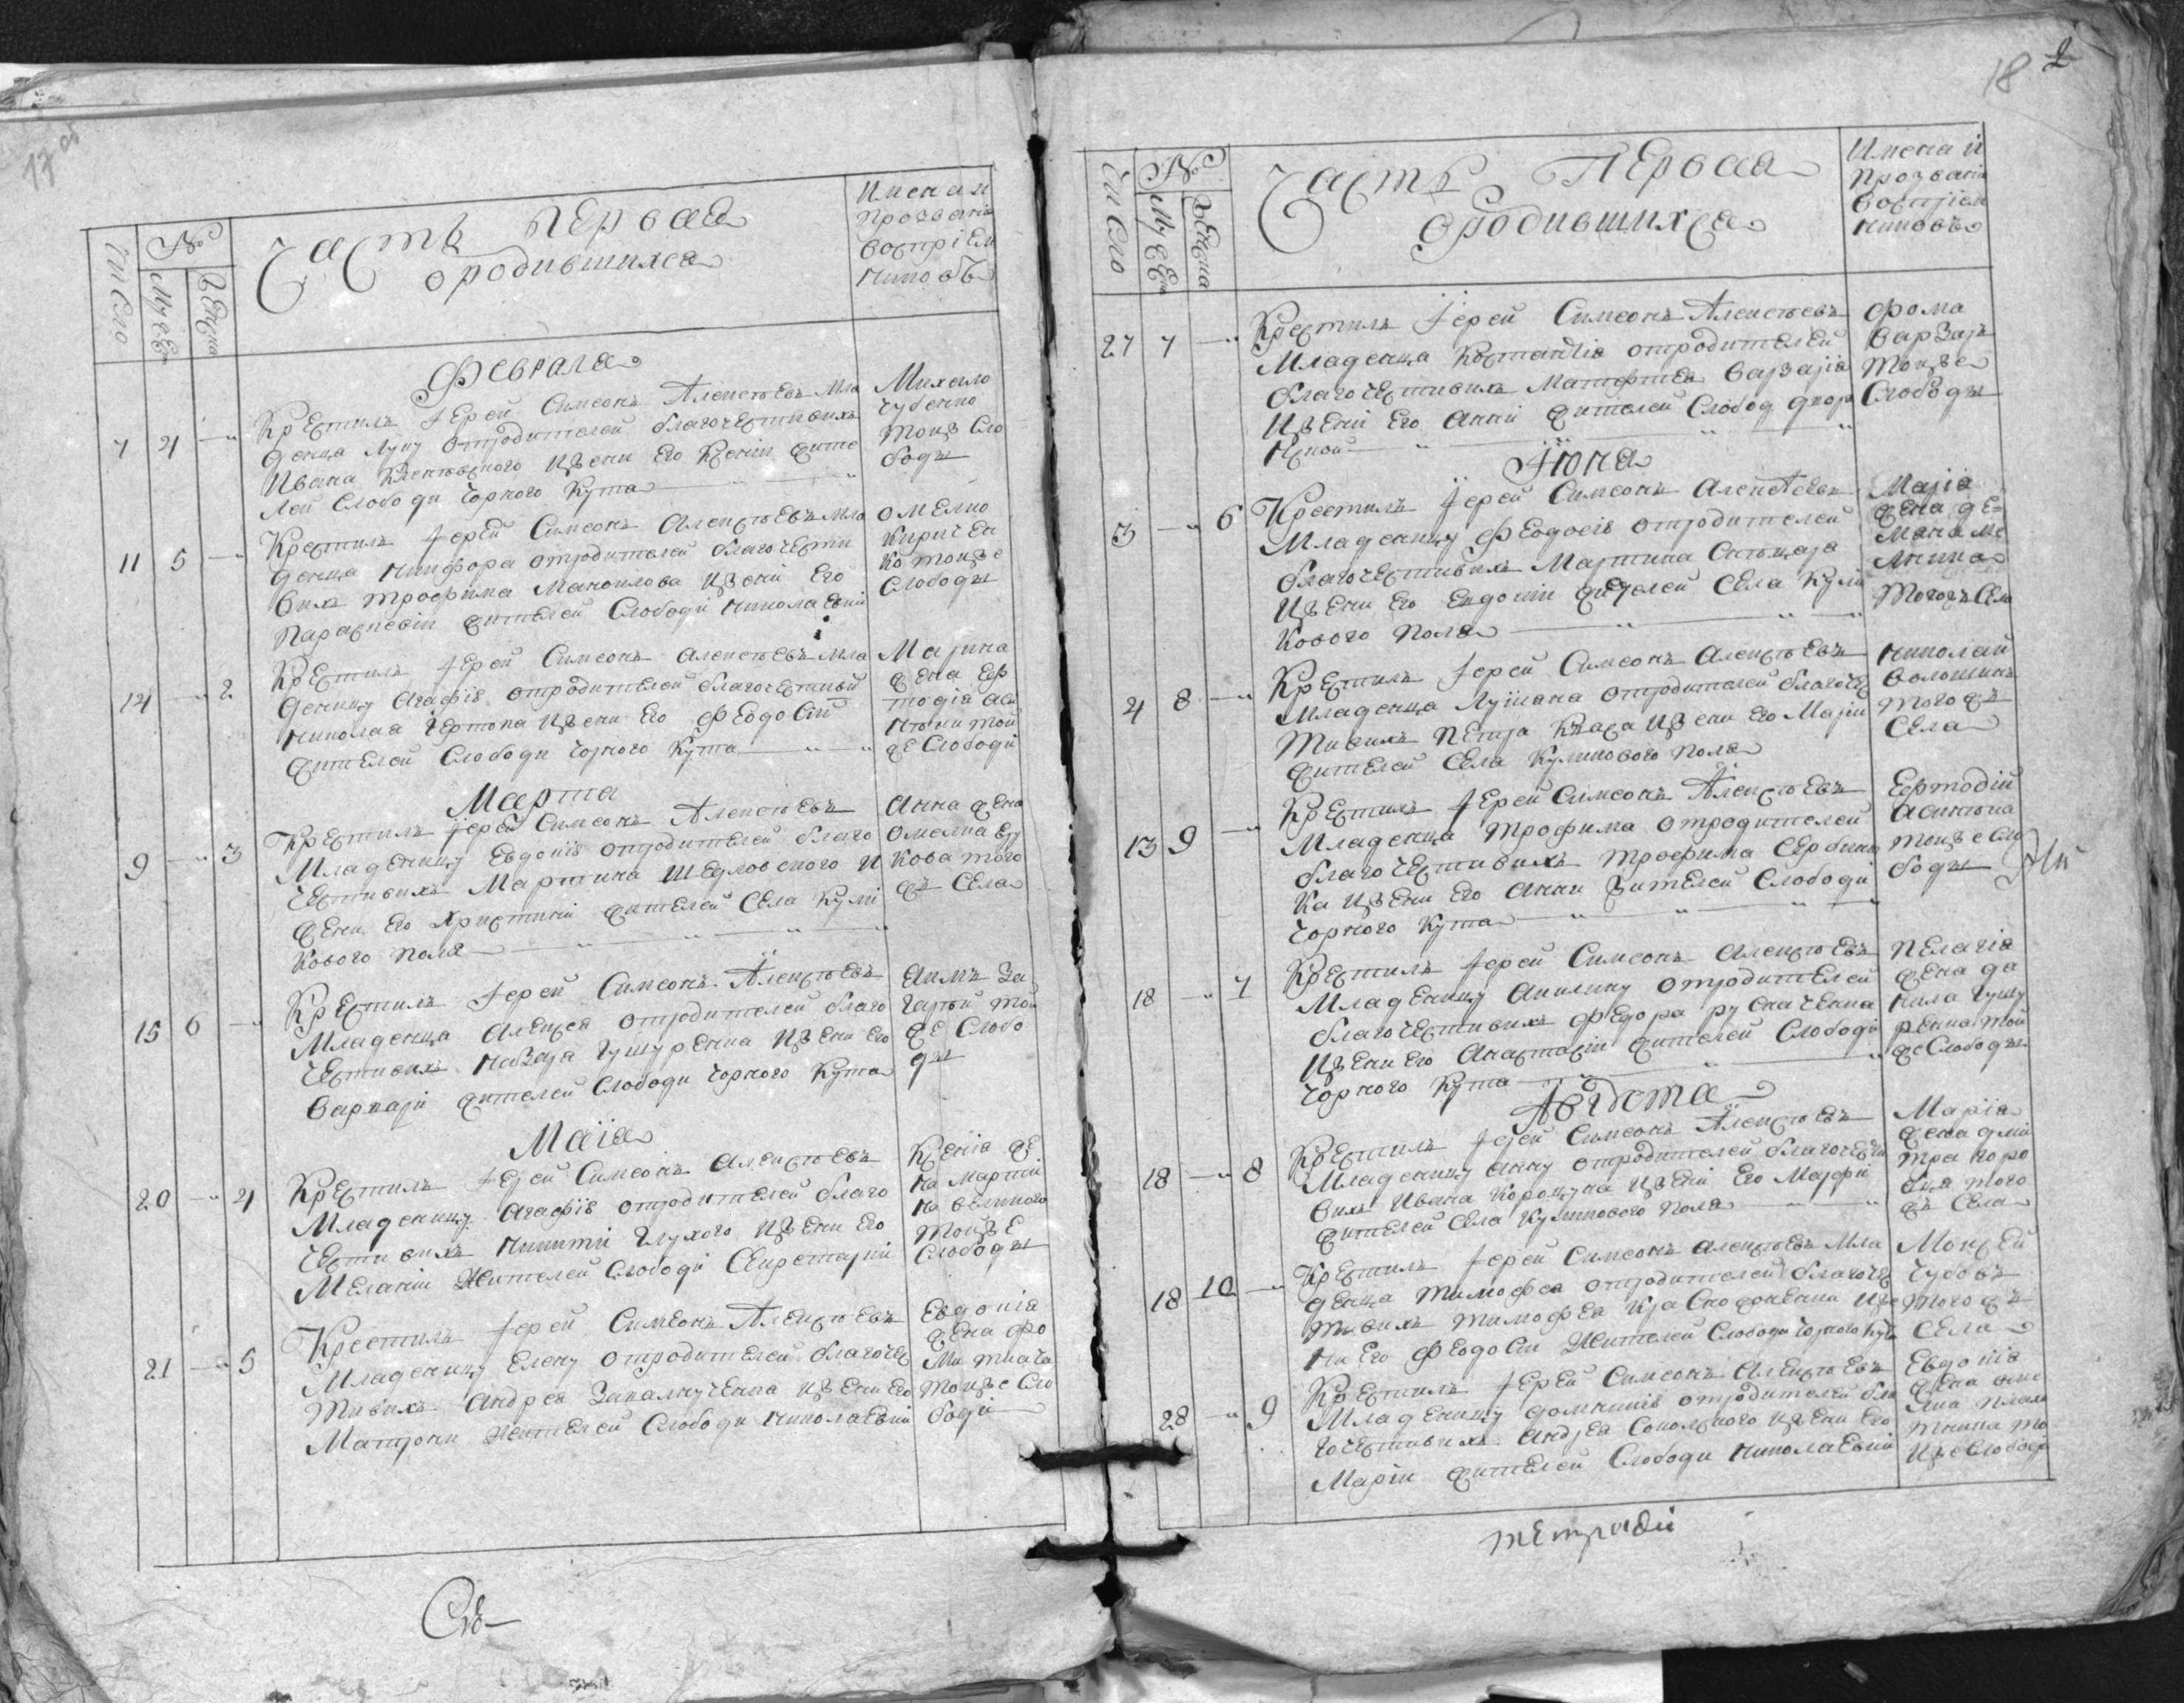 17 об
Число
№
Муск
Женска
Часть первая
о родившихся
Имена и
прозвания
восприем
никовъ
Февраля
7 4
Крестилъ Іерей Симеонъ Алексѣевъ мла
денца Луку отродителей благочестивихъ
Ивана изжени Его Ксеніи жите
лей Слободи Чорного Кута
Михаило
Чубенко
тоижъ Сло
боды
11 5
Крестилъ Іерей Симеонъ Алексѣевъ мла
денца Никифора отродителей благочести
вихъ Трофима Маноилова изжени Его
Параскевіи жителей Слободи Николаевки
Омелко
Киричен
ко тоижъе
Слободы
14 2
Крестилъ Іерей Симеонъ Алексѣевъ мла
деницу Агафію отродителей благочестивих
Николая Чертока изжени Его Феодосіи
жителей Слободи Чорного Кута
Марина
жена Еф
тодія Аси
нюки той
же Слободи
Марта
9 3
Крестилъ Іерей Симеонъ Алексѣевъ
Младеницу Евдокію отродителей благо
честивихъ Мартина Шедловского и
жени Его Христини жителей Села Кули
кового Поля
Анна жена
Омелка
кова того
жъ Села
15 6
Крестилъ Іерей Симеонъ Алексѣевъ
Младенца Алексея отродителей благо
честивихъ Назара Гушуренка изжени Его
Варвари жителей Слободи Чорного Кута
Акимъ За
гарный той
же Слобо
ды
Маія
20 4
Крестилъ Іерей Симеонъ Алексѣевъ
Младеницу Агафію отродителей благо
честивихъ Никити Глухого изжени Его
Меланіи Жителей Слободи Секретарки
Ксенія же
на Марти
на великого
тоижъе
Слободы
21 5
Крестилъ Іерей Симеонъ Алексѣевъ
Младеницу Елену отродителей благочес
тивихъ Андрея Запалнученка изжени Его
Матрони Жителей Слободи Николаевки
Евдокія
жена Фо
ми Ткача
тоижъе Сло
боди
18
2
Число
№
Муск
Женска
Часть Первая
о родившихся
Имена и
Прозвания
воспріем
никовъ
27 7
Крестилъ Іерей Симеонъ Алексѣевъ
Младенца Костантія отродителей
благочестивихъ Матфтея Варзаря
изжени Его Анни жителей Слобод
Фома
Варзаръ
тоижъе
Слободы
Іюня
3 6
Крестилъ Іерей Симеонъ Алексѣевъ
Младеницу Феодосію отродителей
благочестивихъ Мартина
изжени Его Евдокіи жителей Села Кули
кового Поля
Марія
жена де
мяна Ме
лника
тогожъ Села
4 8
Крестилъ Іерей Симеонъ Алексѣевъ
Младенца Лукіана отродителей благочес
тивихъ Петра изжени Его Маріи
жителей Села Куликового Поля
Николай
Волошинъ
того жъ
Села
13 9
Крестилъ Іерей Симеонъ Алексѣевъ
Младенца Трофима отродителей
благочестивихъ Трофима Сербино
ка изжени Его Анни жителей Слободи
Чорного Кута
Ефтодій
Асинюка
тоижъе Сло
боды
18 7
Крестилъ Іерей Симеонъ Алексѣевъ
Младеницу Акилину отродителей
благочестивихъ Федора Русначенка
изжени Его Анастасіи жителей Слободи
Чорного Кута
Пелагія
жена да
нила Гушу
ренка той
же Слободы
Августа
18 8
Крестилъ Іерей Симеонъ Алексѣевъ
Младеницу Анну отродителей благочести
вихъ Ивана Корокуна изжени Его Марфи
жителей Села Куликового Поля
Марія
жена дми
тра
того
жъ Села
18 10
Крестилъ Іерей Симеонъ Алексѣевъ мла
денца Тимофея отродителей благочес
тивихъ Тимофея изже
ни Его Феодосіи Жителей Слободи Чорного Кута
Моисей
Чубовъ
того жъ
Села
28 9
Крестилъ Іерей Симеонъ Алексѣевъ
Младеницу Домникію отродителей бла
гочестивихъ Андрея Соколского изжени Его
Маріи жителей Слободи Николаевки
Евдокія
жена
Плах
тника то
ижъе Слободы
Св
тетради